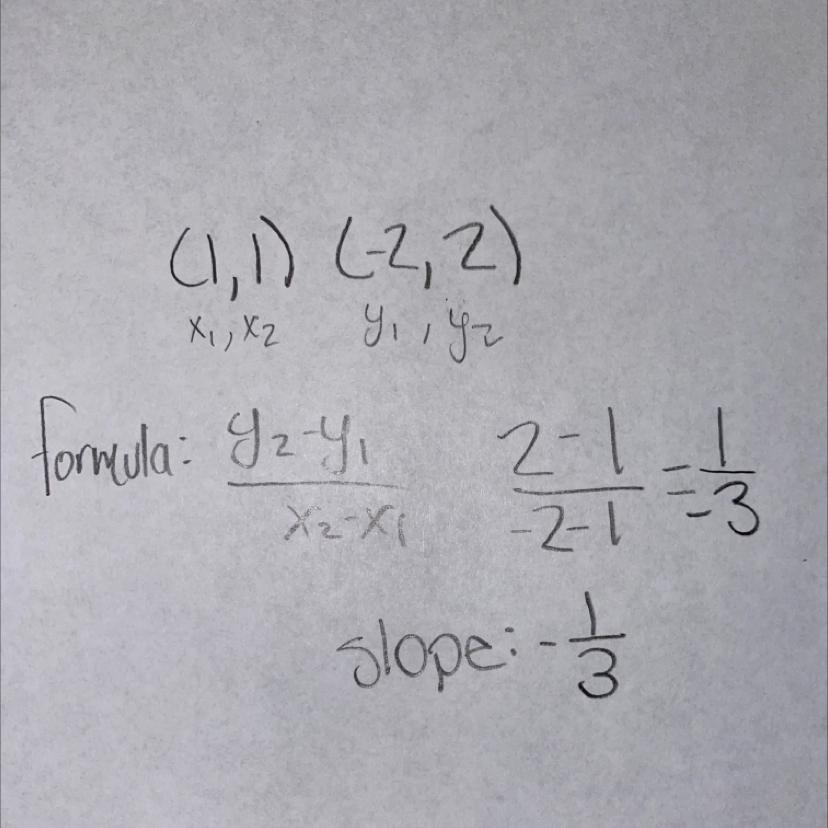 (1,1) (-2,2)
x₁,x₂ y₁,y₂
formula: y₂-y₁/x₂-x₁ 2-1/-2-1 = 1/-3
slope: -1/3